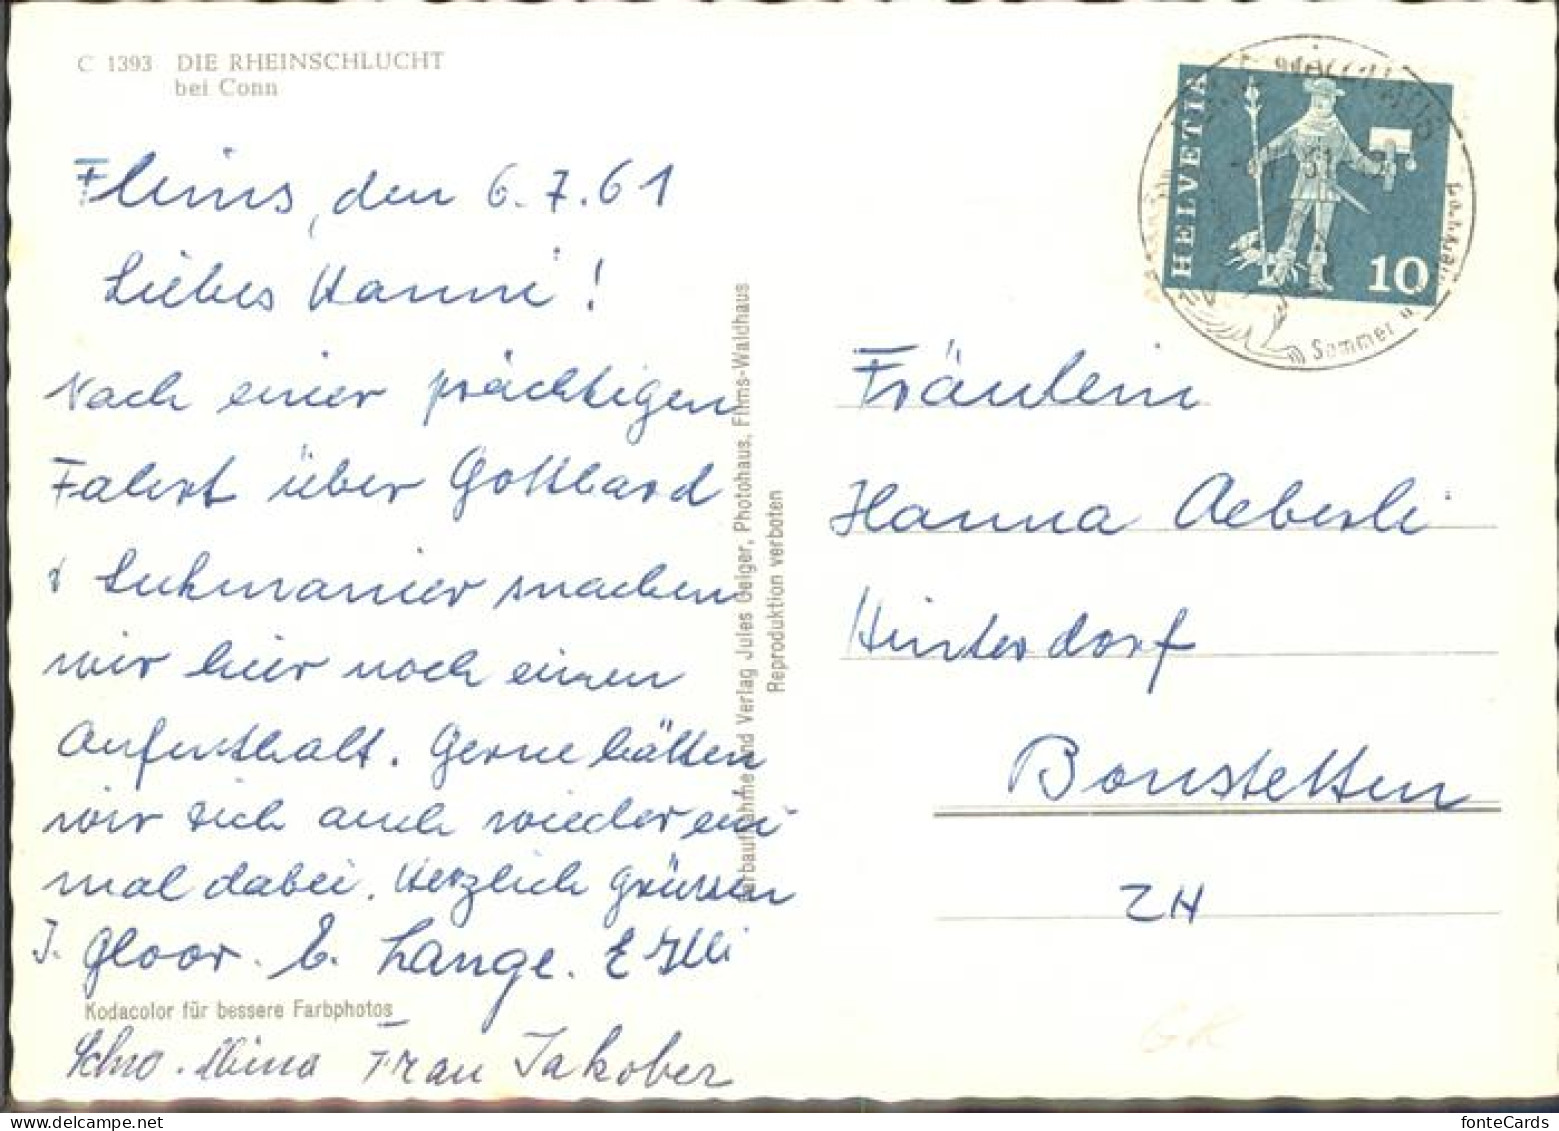 C 1393 DIE RHEINSCHLUCHT
bei Conn
Flims, den 6.7.61
Liebes Hanni!
Nach einer prächtigen
Fahrt über Gotthard
& Lukmanier machen
wir hier noch einen
Aufenthalt. Gerne hätten
wir dich auch wieder ein
mal dabei. Herzlich grüssen
J. Gloor. E. Lange. E Illi
Kodacolor für bessere Farbphotos
Mina Frau Jakober
Farbaufnahme und Verlag Jules Geiger, Photohaus, Flims-Waldhaus
Reproduktion verboten
HELVETIA
10
Sommer u
Fräulein
Hanna Aeberli
Hinterdorf
Bonstetten
ZH
GR
fonteCards